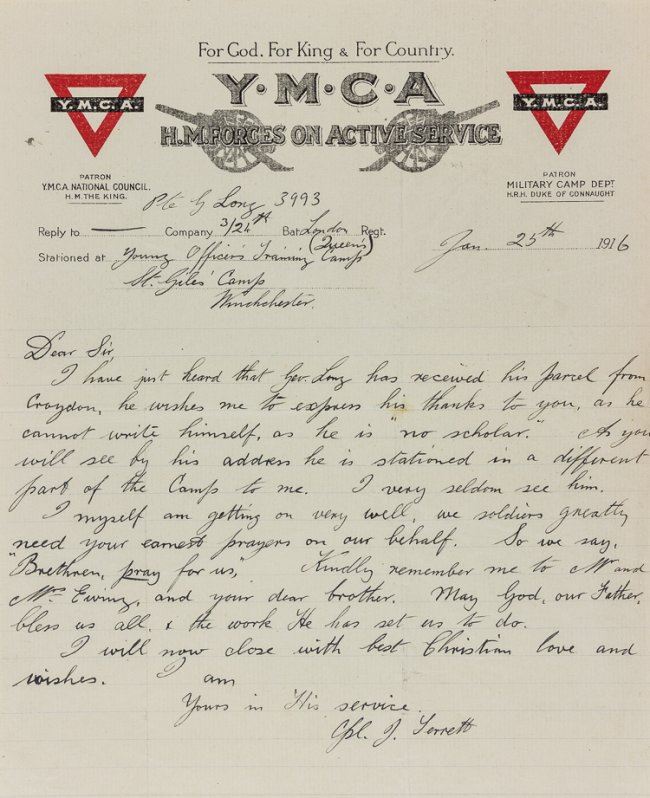 For God. For King & For Country.
Y·M·C·A
H.M. FORCES ON ACTIVE SERVICE
Y.M.C.A.
Y.M.C.A.
PATRON
Y.M.C.A. NATIONAL COUNCIL.
H.M. THE KING.
PATRON
MILITARY CAMP DEPT
H.R.H. DUKE OF CONNAUGHT
Pte G Long 3993
Reply to Company 3/24th Bat. London Regt.
(Queens)
Jan. 25th 1916
Stationed at Young Officer's Training Camp
St. Giles' Camp
Winchester.
Dear Sir,
I have just heard that Geo. Long has received his parcel from
Croydon, he wishes me to express his thanks to you, as he
cannot write himself, as he is "no scholar." As you
will see by his address he is stationed in a different
part of the Camp to me. I very seldom see him.
I myself am getting on very well, we soldiers greatly
need your earnest prayers on our behalf. So we say,
"Brethren, pray for us," Kindly remember me to Mr and
Mrs Ewing, and your dear brother. May God, our Father,
bless us all. & the work He has set us to do.
I will now close with best Christian love and
wishes. I am
Yours in His service.
Cpl. J. Terrett